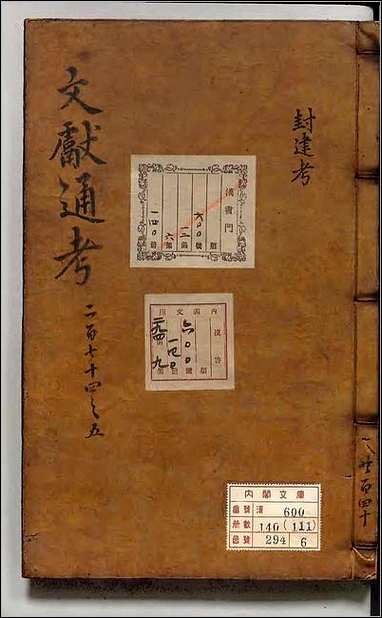 封建考
文獻通考
二百七十四之五
漢書門
類
六〇〇號
一二函
六架
一四〇冊
內閣文庫
漢書
六〇〇
一四〇
二九四
九
內閣文庫
番號 漢 600
冊數 140(111)
函號 294 6